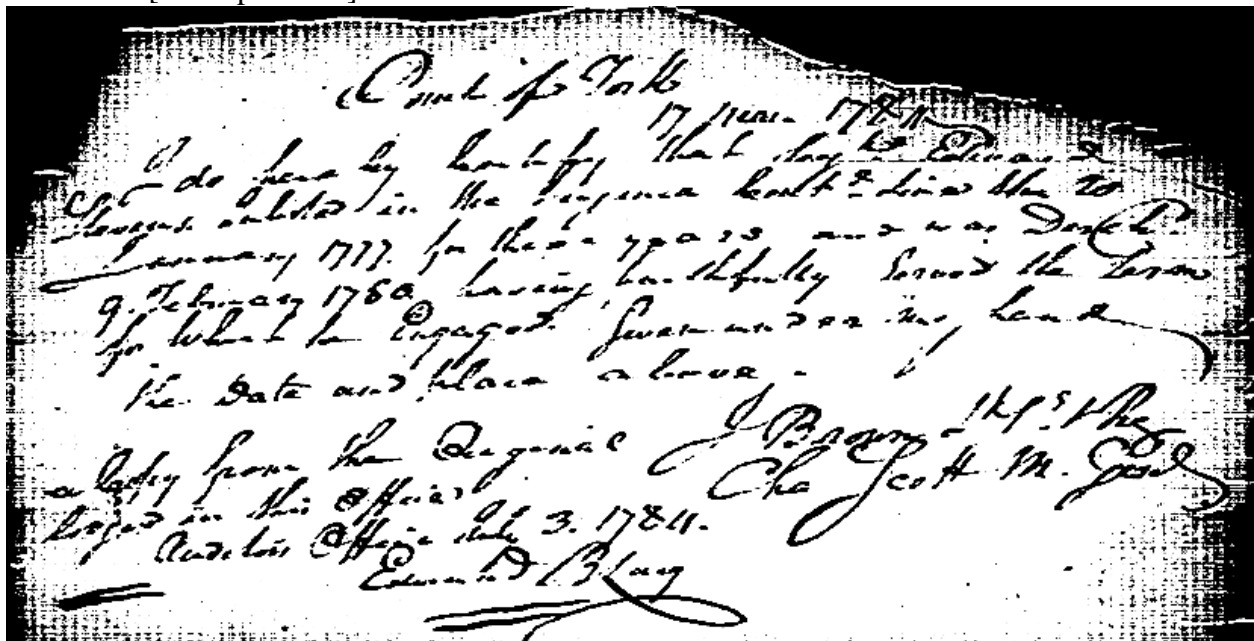 Count of York
17 June 1784
I do hereby Certify that Serg.t Edward
Stevens inlisted in the Virginia Cont.l Line the 20
January 1777. for three years and was Disch.
9. February 1780, having faithfully Served the Term
for Which he Engaged. Given under my hand
the Date and place above.
J Brown
a Copy from the Original Cha Scott M. Genl
lodged in this Office
Auditors Office July 3. 1784.